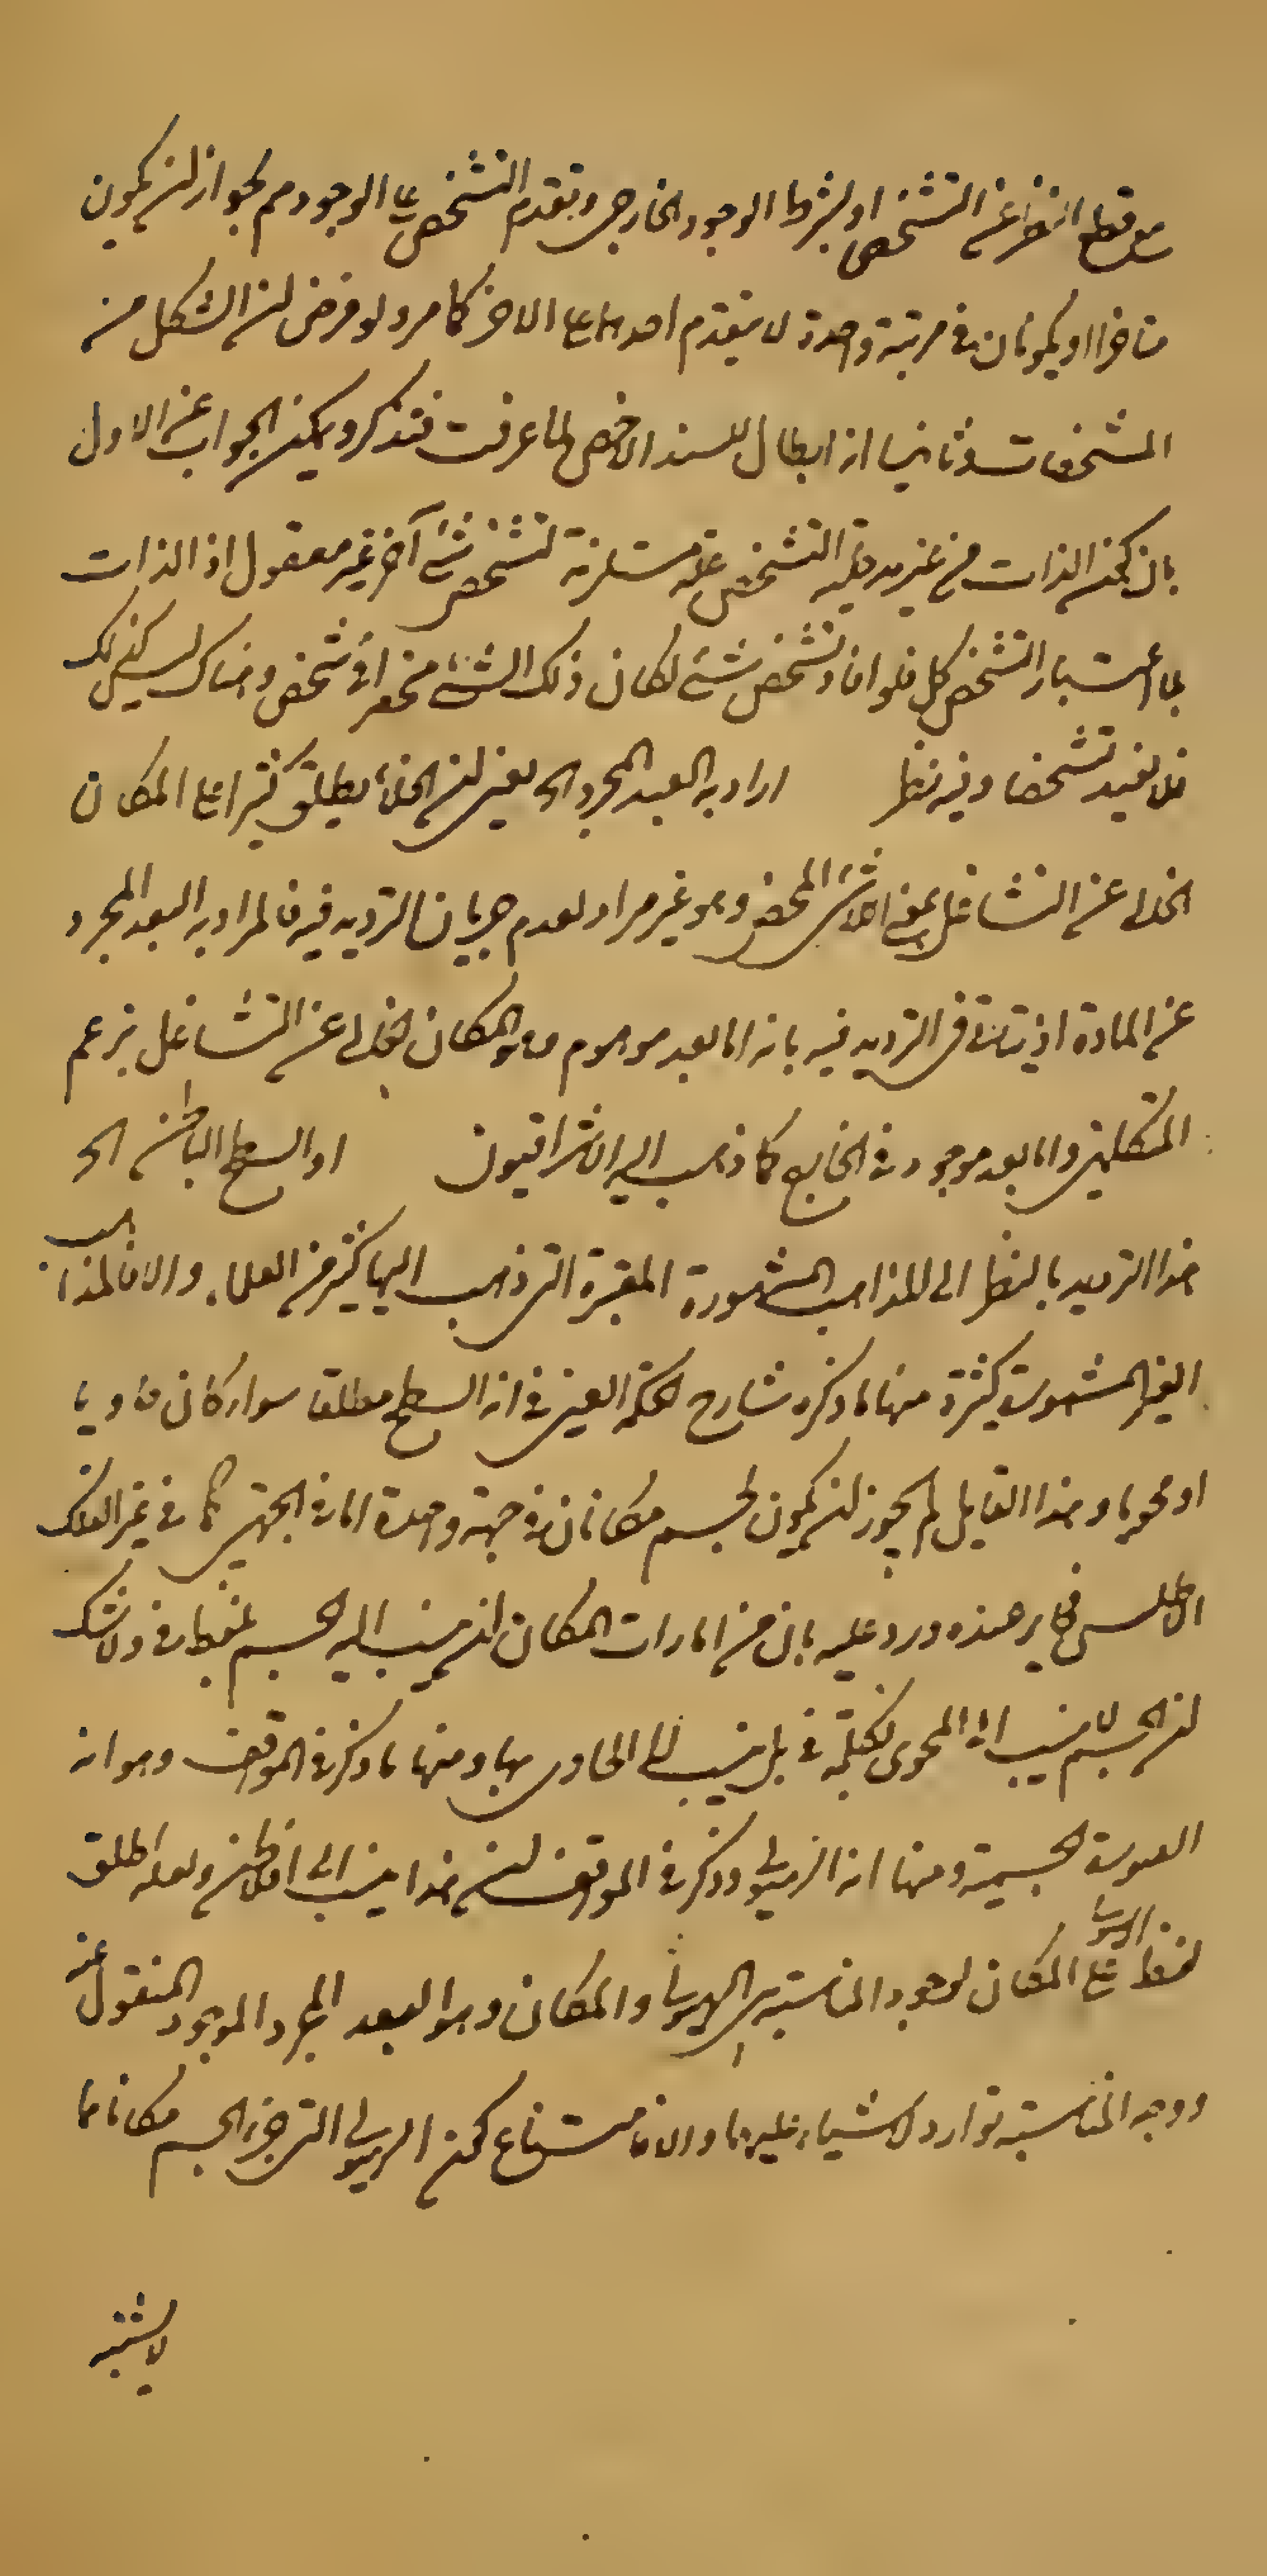 مع قطع النظر عن التشخص او بشرط الوجود الخارجي وتقدم التشخص على الوجود مم لجواز ان يكون
متاخرا او يكونان في مرتبة واحدة لا يتقدم احدهما على الاخر كما مر ولو فرض ان الشكل من
المشخصات وثانيا انه ابطال للسند الاخص لما عرفت فتذكر ويمكن الجواب عن الاول
بان كون الذات من غير مدخلية التشخص علة مستلزمة لتشخص شئ آخر غير معقول اذ الذات
بلا اعتبار التشخص كلي فلو افاد تشخص شئ لكان ذلك الشئ منحصرا في شخص وهناك ليس كذلك
فلا يفيد تشخصا وفيه نظر اراد به البعد المجرد الخ يعني ان الخلاء يطلق كثيرا على المكان
الخالي عن الشاغل بمعنى اللاشئ المحض وهو غير مراد لعدم جريان الترديد فيه فالمراد به البعد المجرد
عن المادة اذ يتأتى في الترديد فيه بانه اما بعد موهوم وهو المكان الخالي عن الشاغل بزعم
المتكلمين واما بعد موجود في الخارج كما ذهب اليه الاشراقيون او السطح الباطن الخ
هذا الترديد بالنظر الى المذاهب المشهورة المعتبرة التي ذهب اليها كثير من العلماء والا فالمذاهب
الغير المشهورة كثيرة منها ما ذكره شارح حكمة العين في انه السطح مطلقا سواء كان حاويا
او محويا وهذا القايل لم يجوز ان يكون لجسم مكانان في جهة واحدة اما في الجهتين كما في غير الفلك
الاطلس فجايز عنده ورد عليه بان من امارات المكان ان ينسب اليه الجسم بلفظة في ولا شك
ان الجسم لا ينسب الى المحوى بكلمة في بل ينسب الى الحاوى بها ومنها ما ذكر في المواقف وهو انه
الصورة الجسمية ومنها انه الهيولى وذكر في المواقف ان هذا ينسب الى افلاطن ولعله اطلق
لفظ الهيولى على المكان لوجود المناسبة بين الهيولى والمكان وهو البعد المجرد الموجود المنقول عنه
ووجه المناسبة توارد الاشياء عليهما والا فامتناع كون الهيولى التي جزء الجسم مكانا مما
لا يشتبه